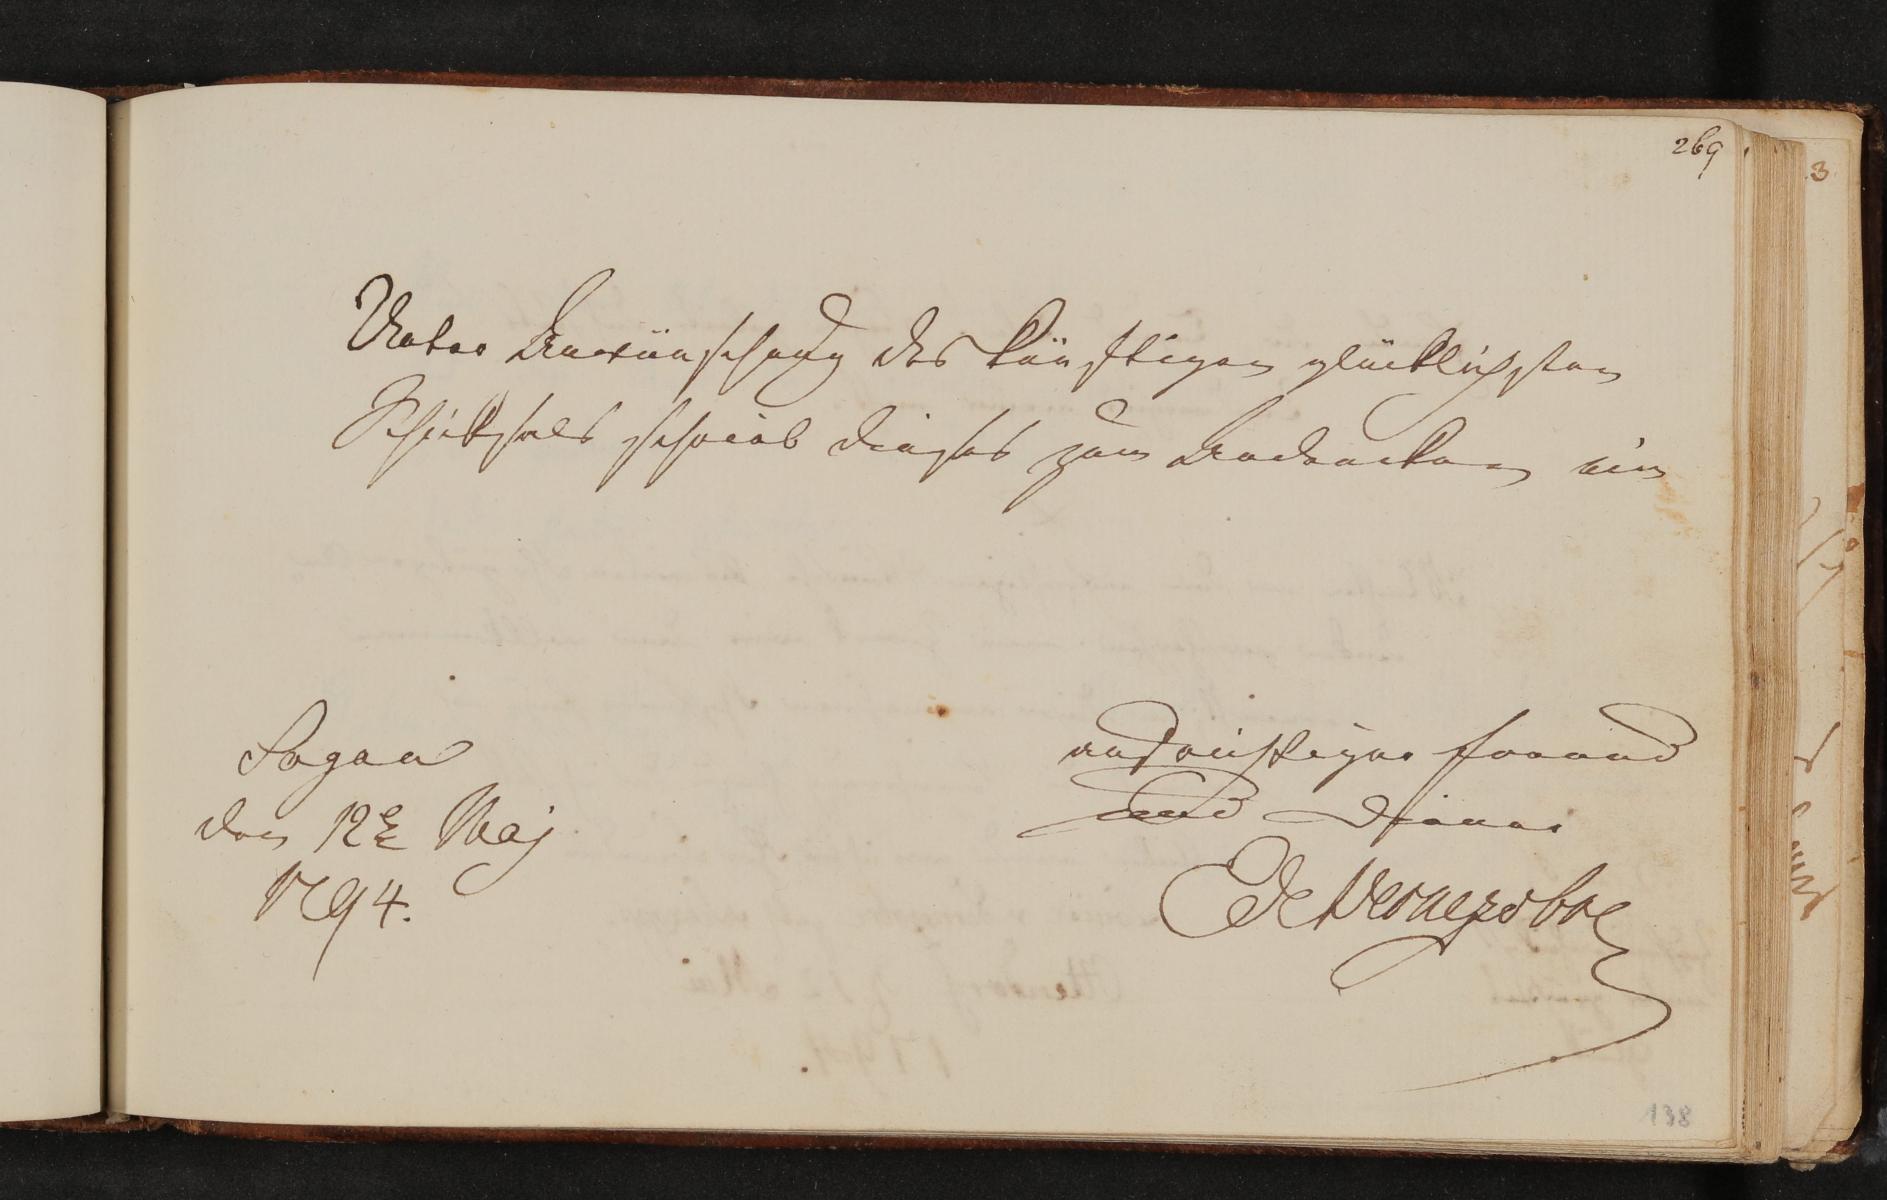 269
3
Unter Anwünschung des künftigen glücklichsten
Schiksals schrieb dieses zum Andencken ein
Sagan
den 12t Maj
1794.
aufrichtiger Freund
und Diener
138